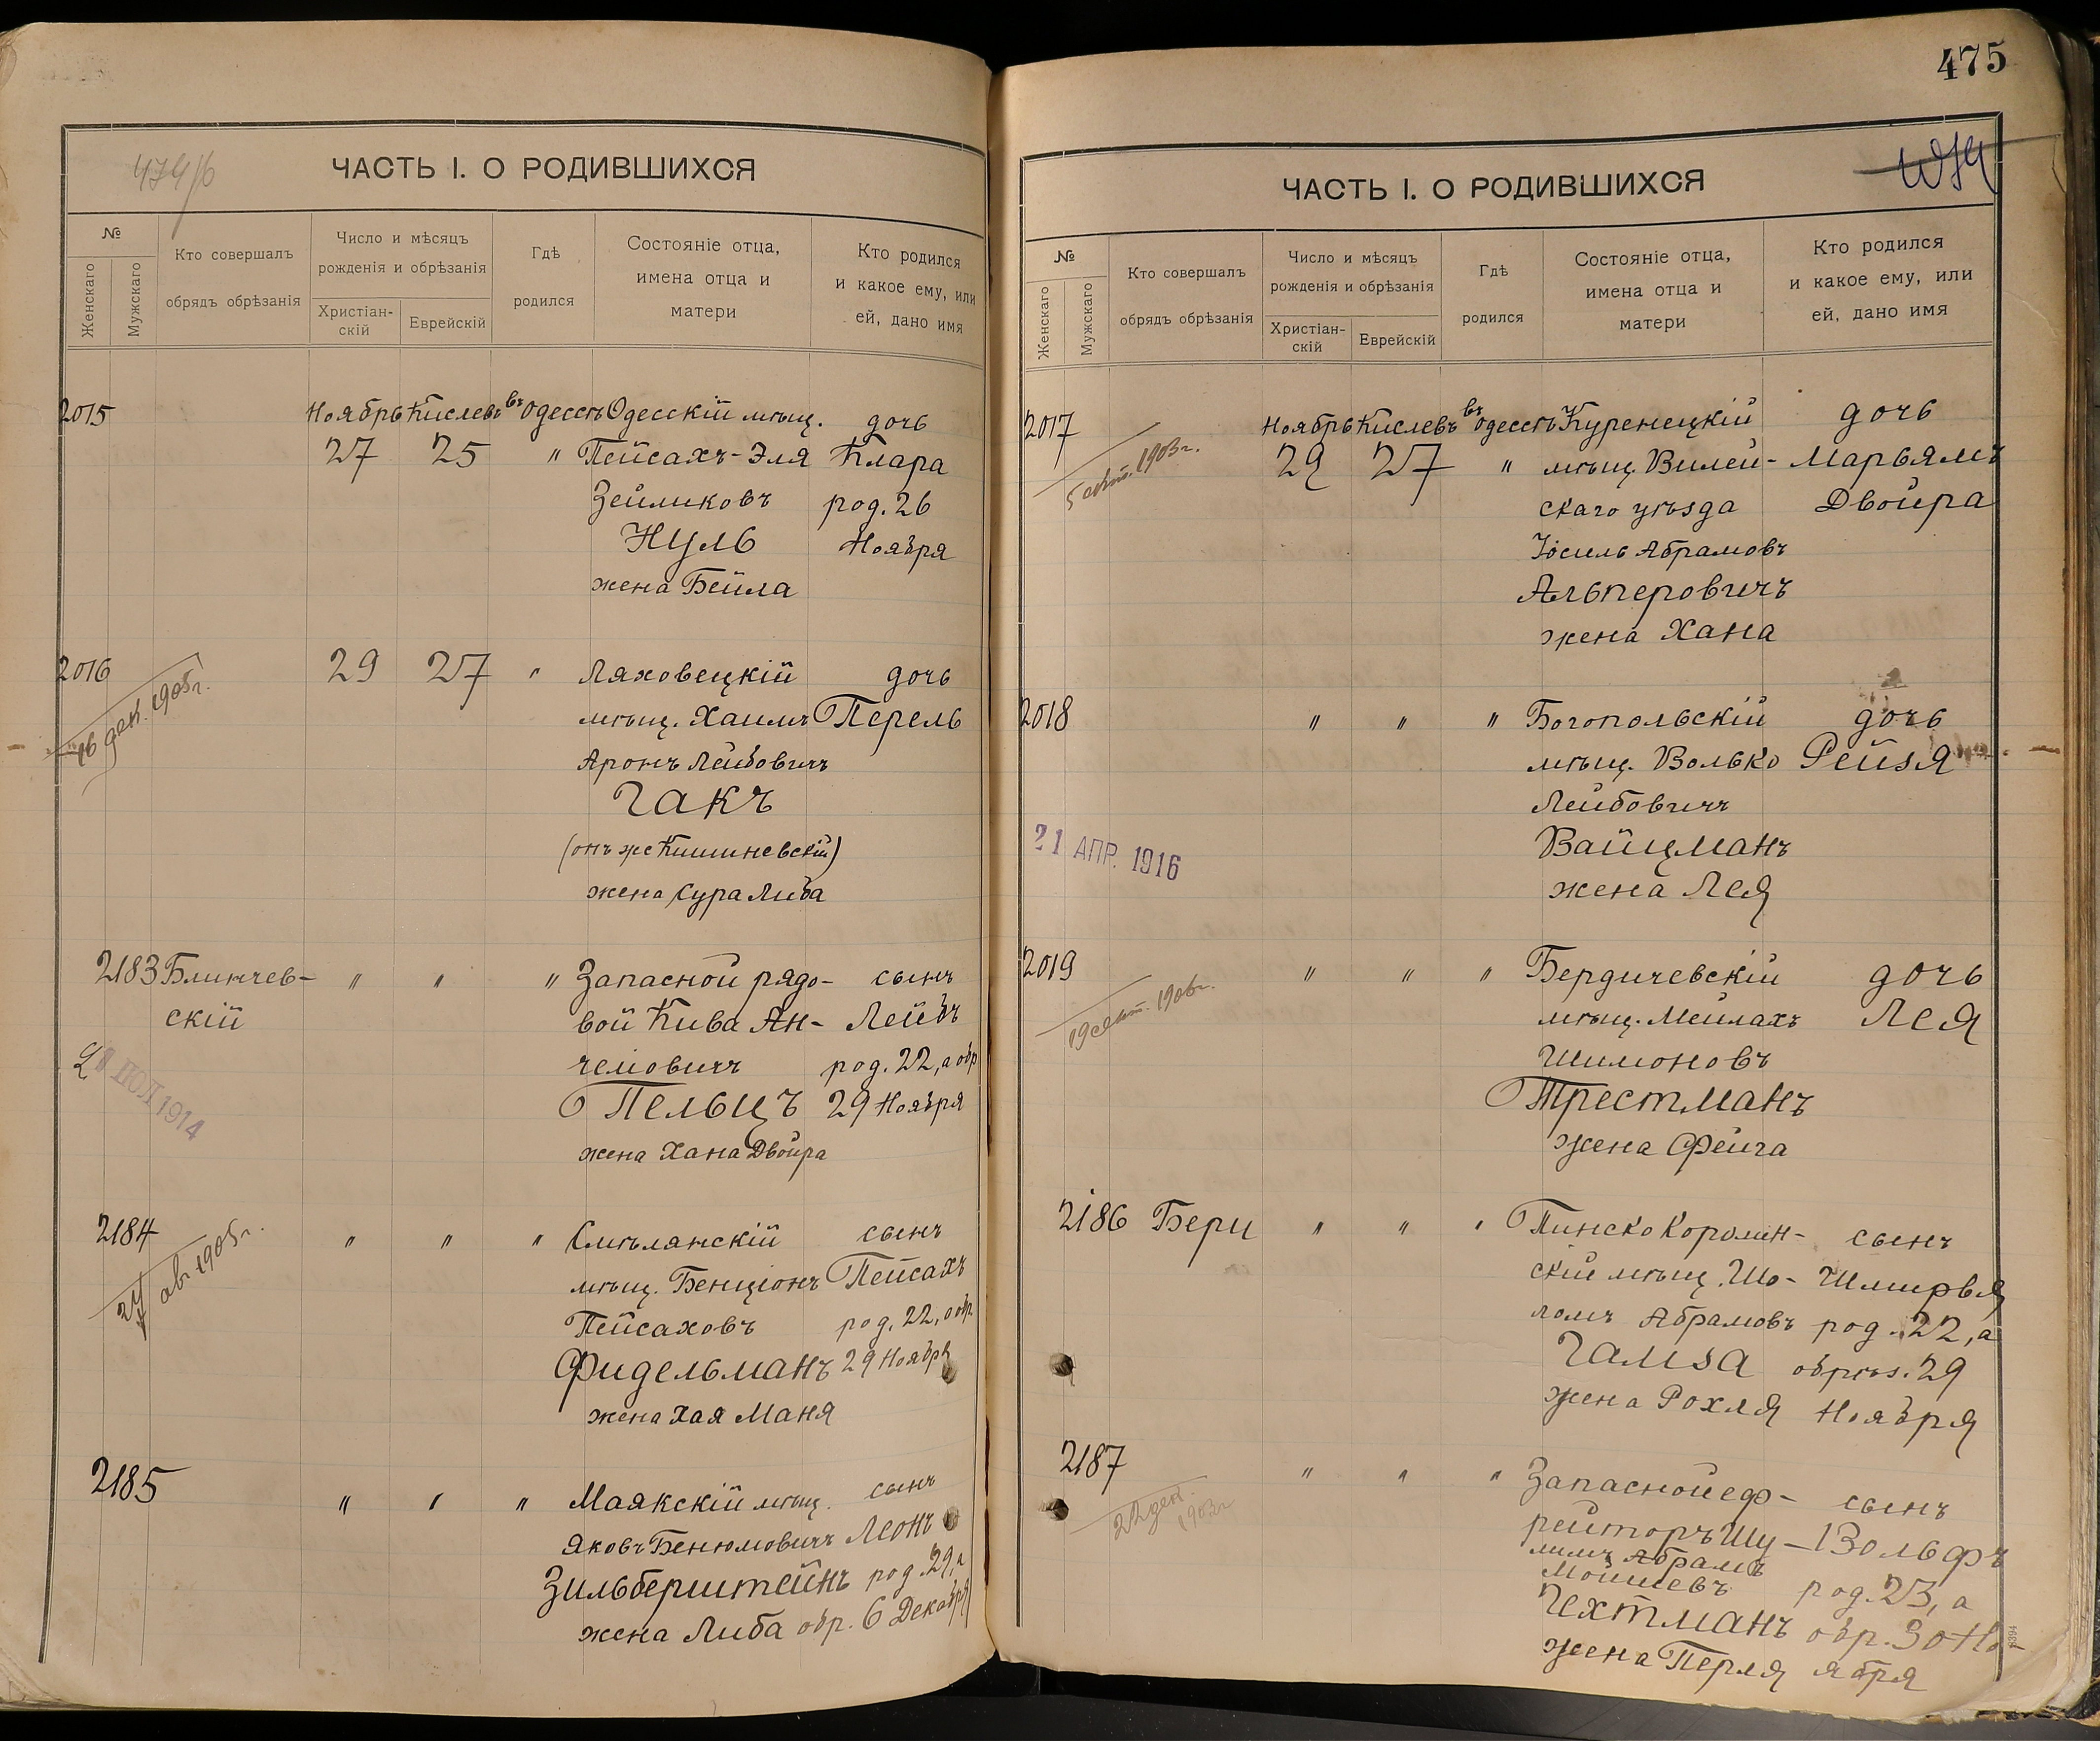 474/б
ЧАСТЬ I. О РОДИВШИХСЯ
№
Женскаго
Мужскаго
Кто совершалъ
обрядъ обрѣзанія
Число и мѣсяцъ
рожденія и обрѣзанія
Христіан-
скій
Еврейскій
Гдѣ
родился
Состояніе отца,
имена отца и
матери
Кто родился
и какое ему, или
ей, дано имя
2015 Ноябрь Кислевъ въ Одессѣ Одесскій мѣщ. дочь
27 25 " Пейсахъ-Эля Клара
Зейликовъ род. 26
Нуль Ноября
жена Бейла
2016 29 27 " Ляховецкій дочь
16 дек. 1905 г.
мѣщ. Хаимъ Перель
Аронъ Лейбовичъ
Гакъ
(онъ же Кишиневскій)
жена Сура Либа
2183 Блинчев- " " " Запасной рядо- сынъ
скій вой Кива Ан- Лейбъ
челіовичъ род. 22, а обр
ІЮЛ 1914
Пельцъ 29 Ноября
жена Хана Двойра
2184 " " " Смѣлянскій сынъ
24 ав 1905 г.
мѣщ. Бенціонъ Пейсахъ
Пейсаховъ род. 22, а обр.
Фидельманъ 29 Ноября
жена Хая Маня
2185 " " " Маякскій мѣщ. сынъ
Яковъ Бенюмовичъ Леонъ
Зильберштейнъ род. 29, а
жена Либа обр. 6 Декабря
475
ЧАСТЬ I. О РОДИВШИХСЯ
№
Женскаго
Мужскаго
Кто совершалъ
обрядъ обрѣзанія
Число и мѣсяцъ
рожденія и обрѣзанія
Христіан-
скій
Еврейскій
Гдѣ
родился
Состояніе отца,
имена отца и
матери
Кто родился
и какое ему, или
ей, дано имя
2017 Ноябрь Кислевъ въ Одессѣ Куренецкій дочь
5 окт. 1903 г.
29 27 " мѣщ. Вилей- Марьямъ
скаго уѣзда Двойра
Іосиль Абрамовъ
Альперовичъ
жена Хана
2018 " " " Богопольскій дочь
мѣщ. Волько Рейзя
Лейбовичъ
21 АПР. 1916
Вайцманъ
жена Лея
2019 " " " Бердичевскій дочь
19 сент. 1906 г.
мѣщ. Мейлахъ Лея
Шимоновъ
Трестманъ
жена Фейга
2186 Бери " " " Пинско Королин- сынъ
скій мѣщ. Шо- Шмирья
ломъ Абрамовъ род. 22, а
Гамза обрѣз. 29
жена Рохля Ноября
2187 " " " Запасной еф- сынъ
22 дек.
1903 г
рейторъ Шу- Вольфъ
лимъ Абрамъ
Мойшевъ род. 23, а
Гехтманъ обр. 30 Но-
жена Перля ября